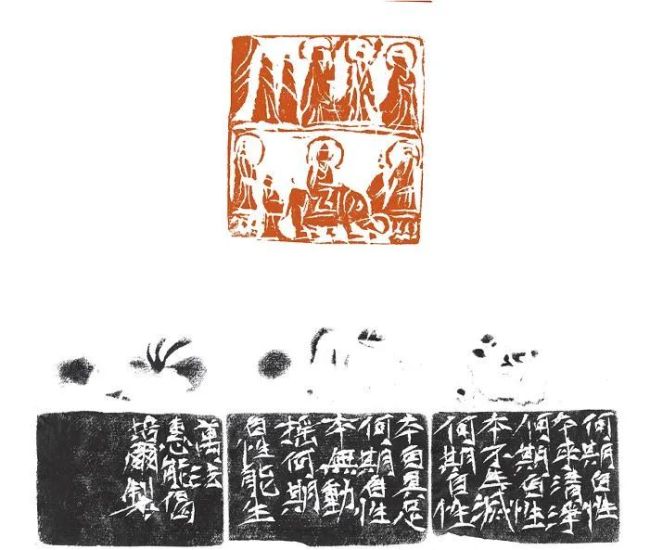 何期自性
本来清淨
何期自性
本不生滅
何期自性
本自具足
何期自性
本無動
搖何期
自性能生
萬法
惠能偈
製